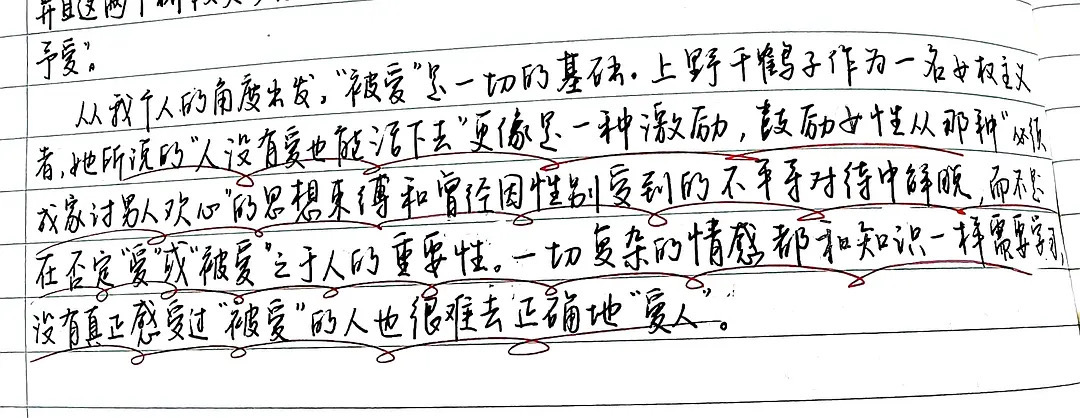 并且这两个
予爱”。
从我个人的角度出发，“被爱”是一切的基础。上野千鹤子作为一名女权主义
者，她所说的“人没有爱也能活下去”更像是一种激励，鼓励女性从那种“必须
成家讨男人欢心”的思想束缚和曾经因性别受到的不平等对待中解脱，而不是
在否定“爱”或“被爱”之于人的重要性。一切复杂的情感都和知识一样需要学习，
没有真正感受过“被爱”的人也很难去正确地“爱人”。